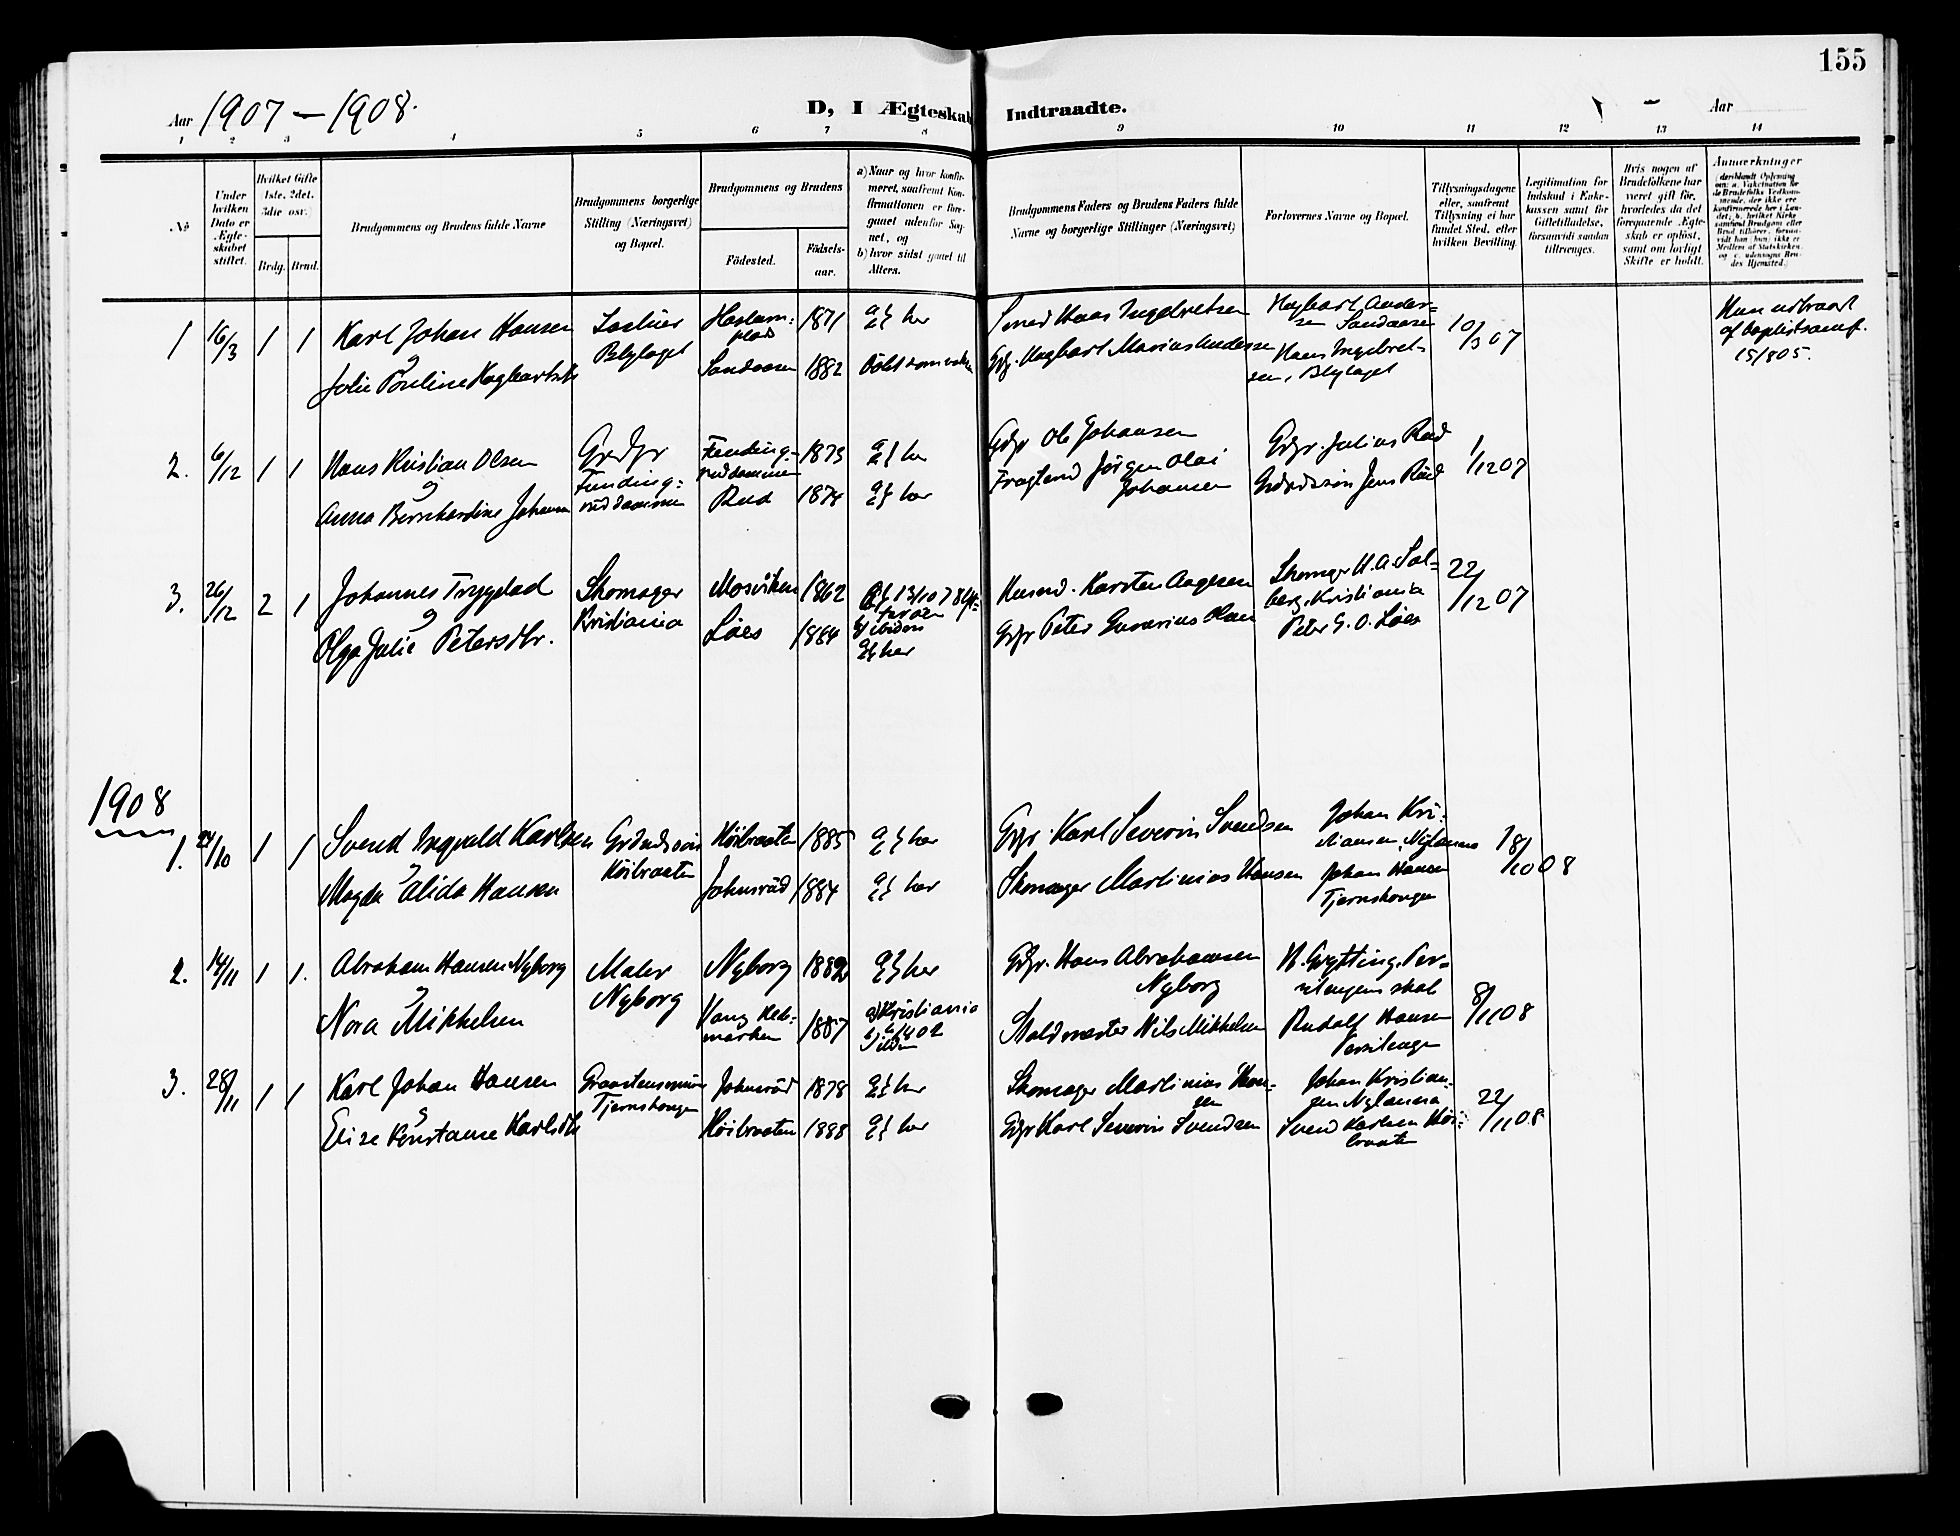 155
Aar 1907 – 1908.
D, I Ægteskab Indtraadte.
Aar
1 2 3 4 5 6 7 8 9 10 11 12 13 14
No
Under hvilken Dato er Ægteskabet stiftet.
Hvilket Gifte 1ste, 2det, 3die osv.)
Brdg. Brud.
Brudgommens og Brudens fulde Navne
Brudgommens borgerlige Stilling (Næringsvei) og Bopæl.
Brudgommens og Brudens
Fødested.
Fødselsaar.
a) Naar og hvor konfirmeret, saafremt Konfirmationen er foregaaet udenfor Sognet, og
b) hvor sidst gaaet til Alters.
Brudgommens Faders og Brudens Faders fulde Navne og borgerlige Stillinger (Næringsvei)
Forlovernes Navne og Bopæl.
Tillysningsdagene eller, saafremt Tillysning ei har fundet Sted, efter hvilken Bevilling.
Legitimation for Indskud i Enkekassen samt for Giftetilladelse, forsaavidt saadan tiltrænges.
Hvis nogen af Brudefolkene har været gift før, hvorledes da det foregaaende Ægteskab er opløst, samt om lovligt Skifte er holdt.
Anmærkninger
1 16/3 1 1 Karl Johan Hansen
Julie Pouline Hagbartsdtr
Blylaget
1871
Sandaasen 1882
a} b} her
Smed Hans Ingebretsen
Gbr. Hagbart Marius Andersen
Hagbart Andersen Sandaasen
Hans Ingebretsen, Blylaget
10/3 07
Hun udtraadt af baptistsamf. 15/8 05.
2. 6/12 1 1 Hans Kristian Olsen
og
Anna Bernhardine Johansen
Grdbr
1873
Rud 1874
a} b} her
a} b} her
Gbr Ole Johansen
Jørgen Olai Johansen
Gbr. Julius Rud
Jens Rud
1/12 07
3. 26/12 2 1 Johannes Trygstad
og
Olga Julie Petersdtr.
Skomager Kristiania
Mosviken 1862
Løes 1884
a} b} her
Husmd. Karsten Aagesen
Skomager H. A. Solberg, Kristiania
Peter G. O. Løes
22/12 07
1908
1. 24/10 1 1 Svend Ingvald Karlsen
og
Magda Alida Hansen
Høibraaten
Høibraaten 1885
Johnsrud 1884
a} b} her
a} b} her
Gbr. Karl Severin Svendsen
Skomager Martinius Hansen
Johan Kristiansen, Nylænna
Johan Hansen Tjernshaugen
18/10 08
2. 14/11 1 1. Abraham Hansen Nyborg
og
Nora Mikkelsen
Maler Nyborg
Nyborg 1882
Vang Hedemarken 1887
a} b} her
a) Kristiania
Gbr. Hans Abrahamsen Nyborg
Staldmester Nils Mikkelsen
Rudolf Hansen
8/11 08
3. 28/11 1 1 Karl Johan Hansen
og
Elise Konstanse Karlsdtr
Tjernshaugen
Johnsrud 1878
Høibraaten 1888
a} b} her
a} b} her
Skomager Martinius Hansen
Gbr Karl Severin Svendsen
Johan Kristiansen Nylænna
Svend Karlsen Høibraaten
22/11 08